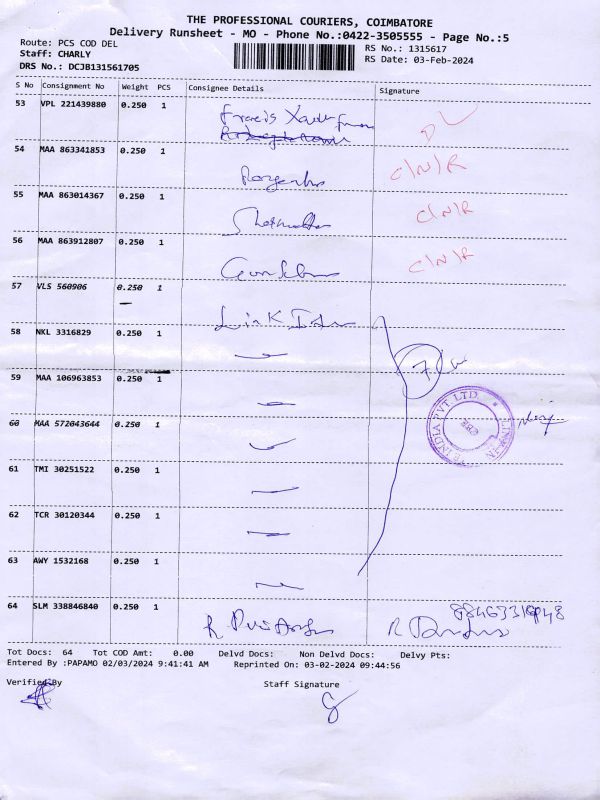 THE PROFESSIONAL COURIERS, COIMBATORE
Delivery Runsheet - MO - Phone No.:0422-3505555 - Page No.:5
Route: PCS COD DEL
RS No.: 1315617
Staff: CHARLY
RS Date: 03-Feb-2024
DRS No.: DCJB131561705
S No Consignment No Weight PCS Consignee Details Signature
53 VPL 221439880 0.250 1
Francis Xavier
54 MAA 863341853 0.250 1
C/N/R
55 MAA 863014367 0.250 1
C/N/R
56 MAA 863912807 0.250 1
C/N/R
57 VLS 560906 0.250 1
Link
58 NKL 3316829 0.250 1
59 MAA 106963853 0.250 1
60 MAA 572043644 0.250 1
INDIA PVT LTD
61 TMI 30251522 0.250 1
62 TCR 30120344 0.250 1
63 AWY 1532168 0.250 1
64 SLM 338846840 0.250 1
R
R
Tot Docs: 64 Tot COD Amt: 0.00 Delvd Docs: Non Delvd Docs: Delvy Pts:
Entered By :PAPAMO 02/03/2024 9:41:41 AM Reprinted On: 03-02-2024 09:44:56
Verified By
Staff Signature